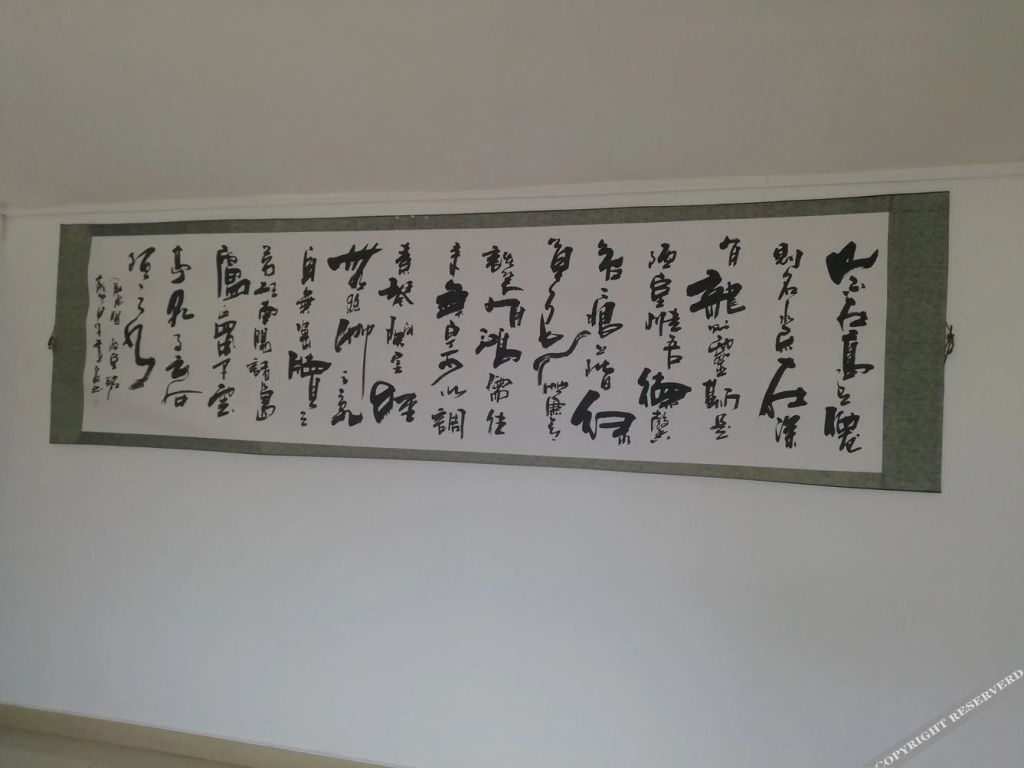 山不在高有僊
則名水不在深
有龍則靈斯是
陋室惟吾德馨
苔痕上階緑
草色入簾青
談笑有鴻儒往
来無白丁可以調
素琴閲金經
無絲竹之亂
耳無案牘之
勞形南陽諸葛
廬西蜀子雲
亭孔子云何
陋之有
劉禹錫陋室銘
COPYRIGHT RESERVERD